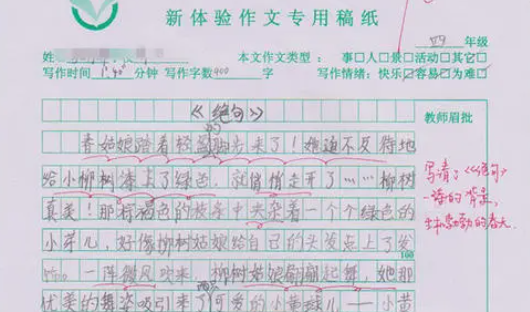 新体验作文专用稿纸
四 年级
姓
本文作文类型：事□人□景□活动□其它□
写作时间 1:40 分钟 写作字数 400 字
写作情绪：快乐□容易□为难□
《绝句》
教师眉批
春姑娘踏着轻盈的脚步来了！她迫不及待地
给小柳树涂上了绿色！就悄悄走开了……柳树
真美！那褐色的枝条中夹杂着一个个绿色的
小芽儿，好像柳树姑娘给自己的头发点上了发
100
一阵微风吹来，柳树姑娘翩翩起舞，她那
优美的舞姿吸引来了两只可爱的小黄鹂儿——小黄
写清了《绝句》
一诗的背景，
生机勃勃的春天。